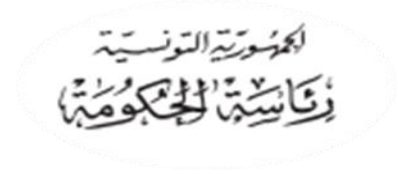 الجمهورية التونسية
رِئَاسَة الحُكُومَة